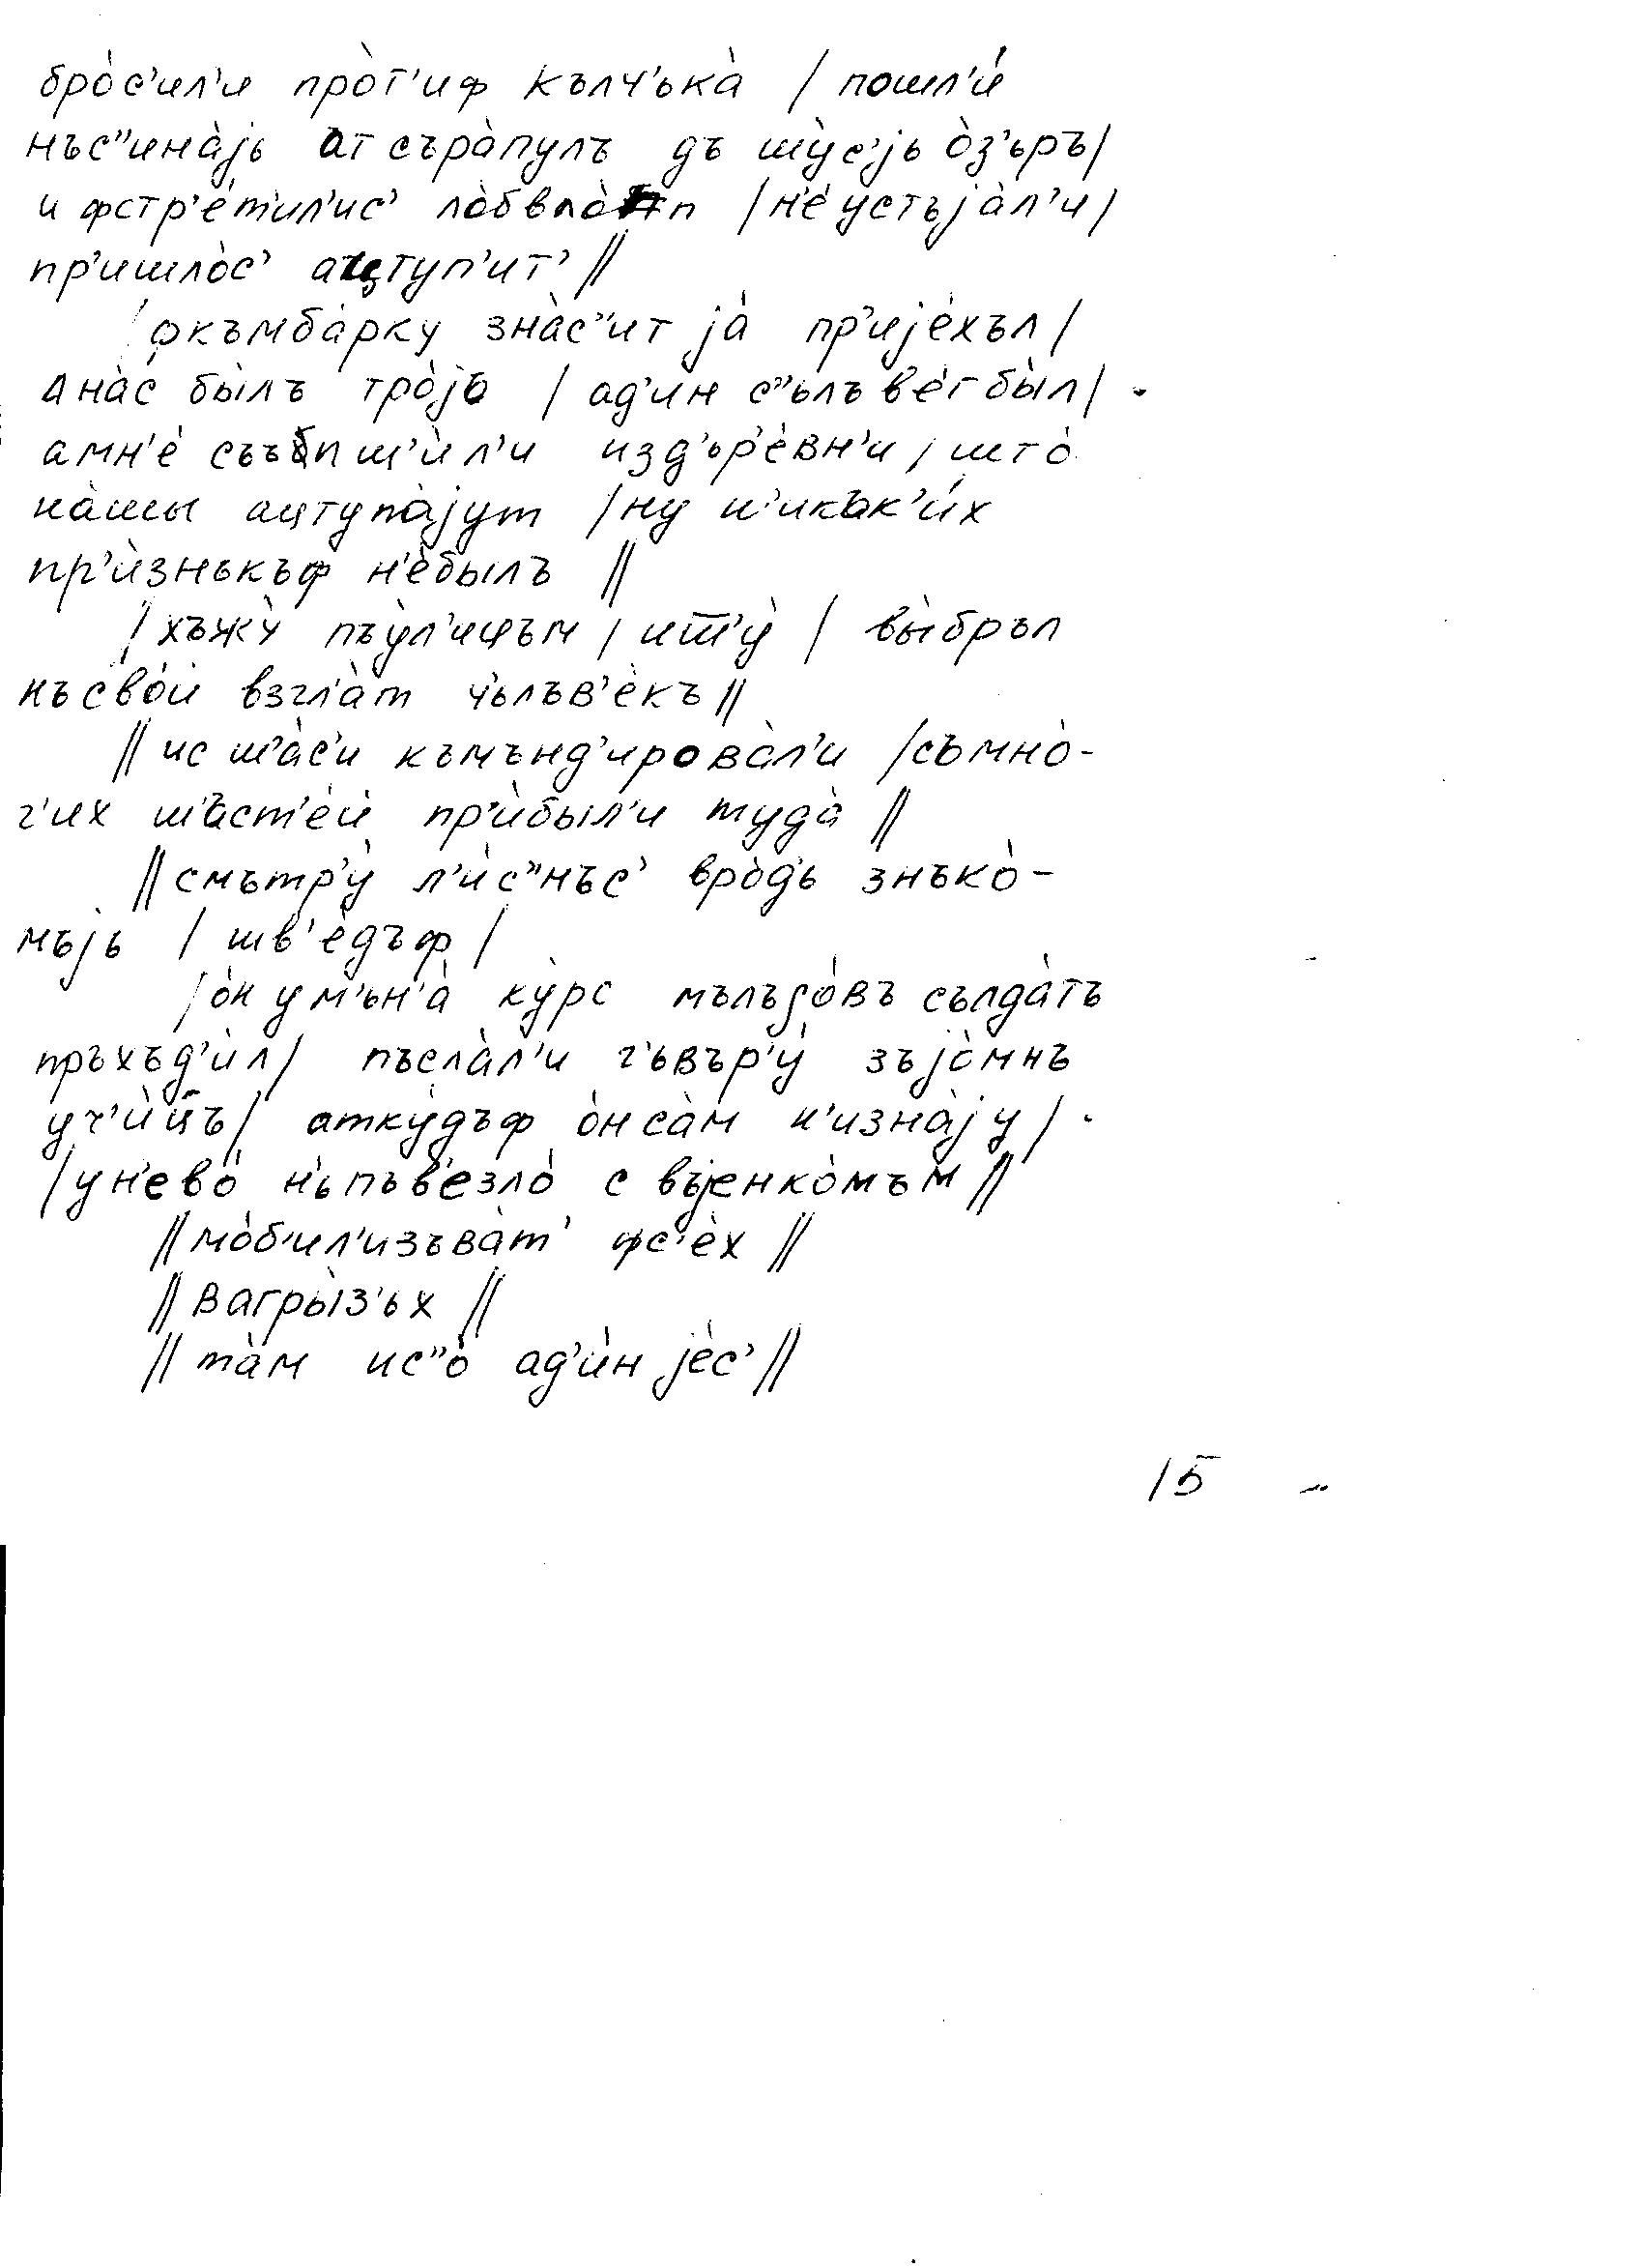 бро̀с'ил'и про̀т'иф кълч'ька̀ / пошл'и́
нъс"ина̀јь атсъра̀пулъ дъ шу̀с'јь о̀з'ъръ/
и фстр'е́т'ил'ис' ло̀бвло̀п /н'е́устъја̀л'и/
пр'ишло̀с' ацтуп'ит' //
/фкъмба́рку зна̀с"ит ја́ пр'ије́хъл /
ана̀с бы̀лъ тро̀јъ / ад'ин с"ьлъвѐгбы̀л/
амн'е́ съъпш'ѝл'и изд'ьр'ѐвн'и / што̀
на̀шы ацтупа̀јут /ну н'икак'и́х
пр'ѝзнькъф н'ѐбылъ //
/хъжу̀ пъу̀л'ицъм / ит̅'у̀ / вы̀бръл
нъсво́й взгл'а̀т ч'ьлъв'ѐкъ//
// ис ш'а̀с'и къмънд'ирова̀л'и /съмно̀-
г'их ш'ъст'е́й пр'ѝбыл'и туда̀ //
// смътр'у̀ л'ѝс"нъс' вро̀д'ь знъко̀-
мъјь / шв'ѐдъф /
/о̀н ум'ьн'а̀ ку̀рс мълъдо́въ сълда̀тъ
пръхъд'ѝл/ пъсла̀л'и г'ьвър'у̀ зъјо̀мнъ
уч'ѝц̅ъ/ атку̀дъф о̀нса̀м н'изна̀ју/
/ун'ево̀ н'ьпъв'езло̀ с въјенко̀мъм//
// мо̀б'ил'изъва̀т' фс'ѐх //
// вагры̀з'ьх //
// та̀м ис"о̀ ад'ѝн јѐс' //
15